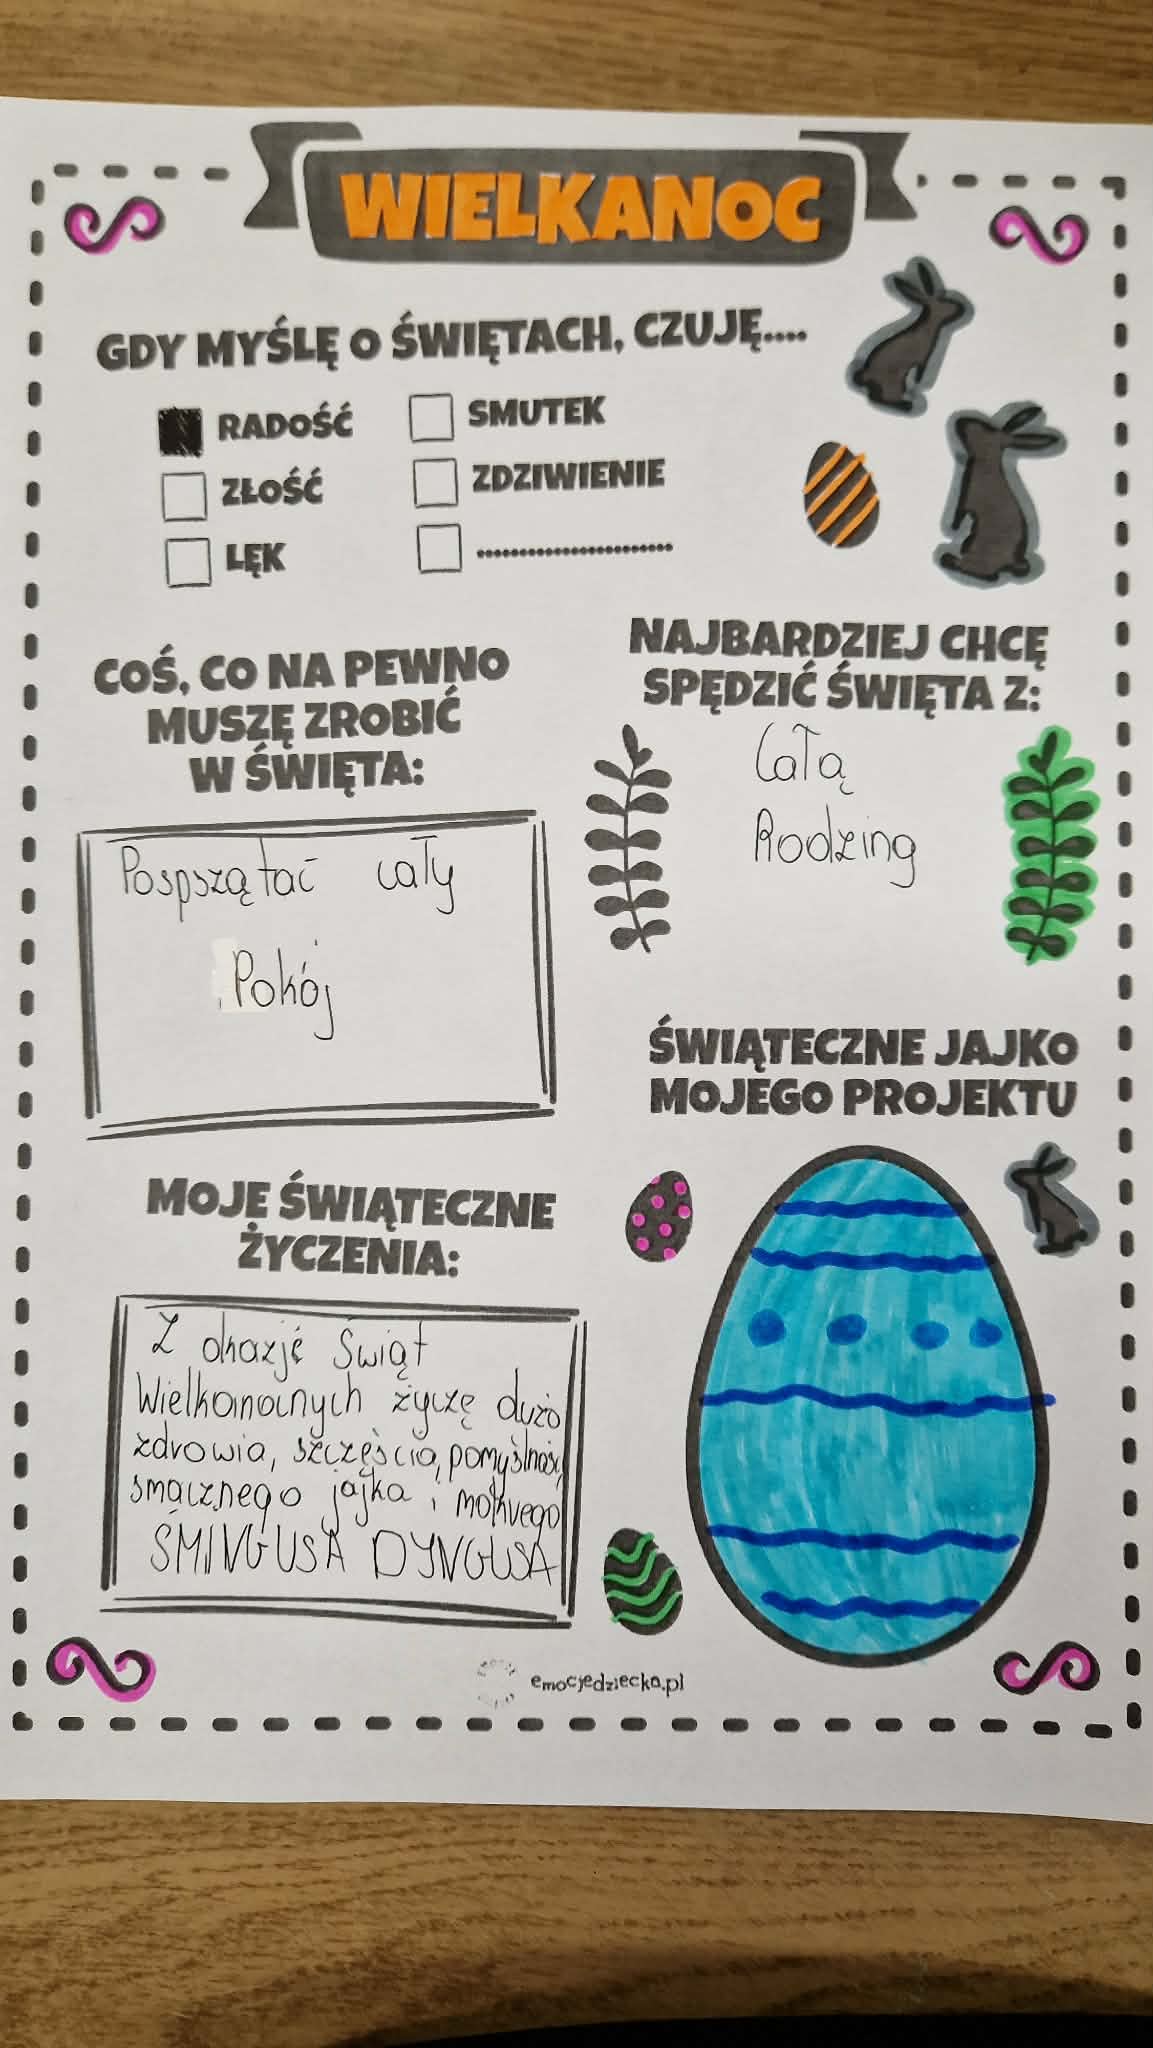 WIELKANOC
GDY MYŚLĘ O ŚWIĘTACH, CZUJĘ....
RADOŚĆ
SMUTEK
ZŁOŚĆ
ZDZIWIENIE
LĘK
..............................
COŚ, CO NA PEWNO
MUSZĘ ZROBIĆ
W ŚWIĘTA:
Pospszątać cały
Pokój
NAJBARDZIEJ CHCĘ
SPĘDZIĆ ŚWIĘTA Z:
Całą
Rodziną
ŚWIĄTECZNE JAJKO
MOJEGO PROJEKTU
MOJE ŚWIĄTECZNE
ŻYCZENIA:
Z okazje Świąt
Wielkanocnych życzę dużo
zdrowia, szczęścia, pomyślności,
smacznego jajka i mokrego
ŚMINGUSA DYNGUSA
emocjedziecka.pl